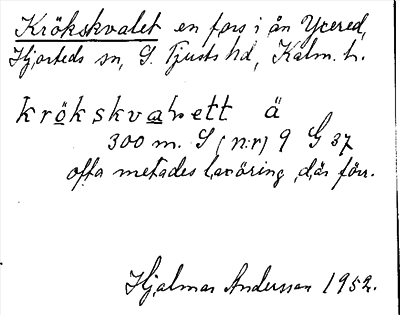 Krökskvalet en fors i ån Yxered,
Hjorteds sn, S. Tjusts hd, Kalm. l.
krökskvalett ä
300 m. S (n:r) 9 G 37
ofta metades laxöring där förr.
Hjalmar Andersson 1952.